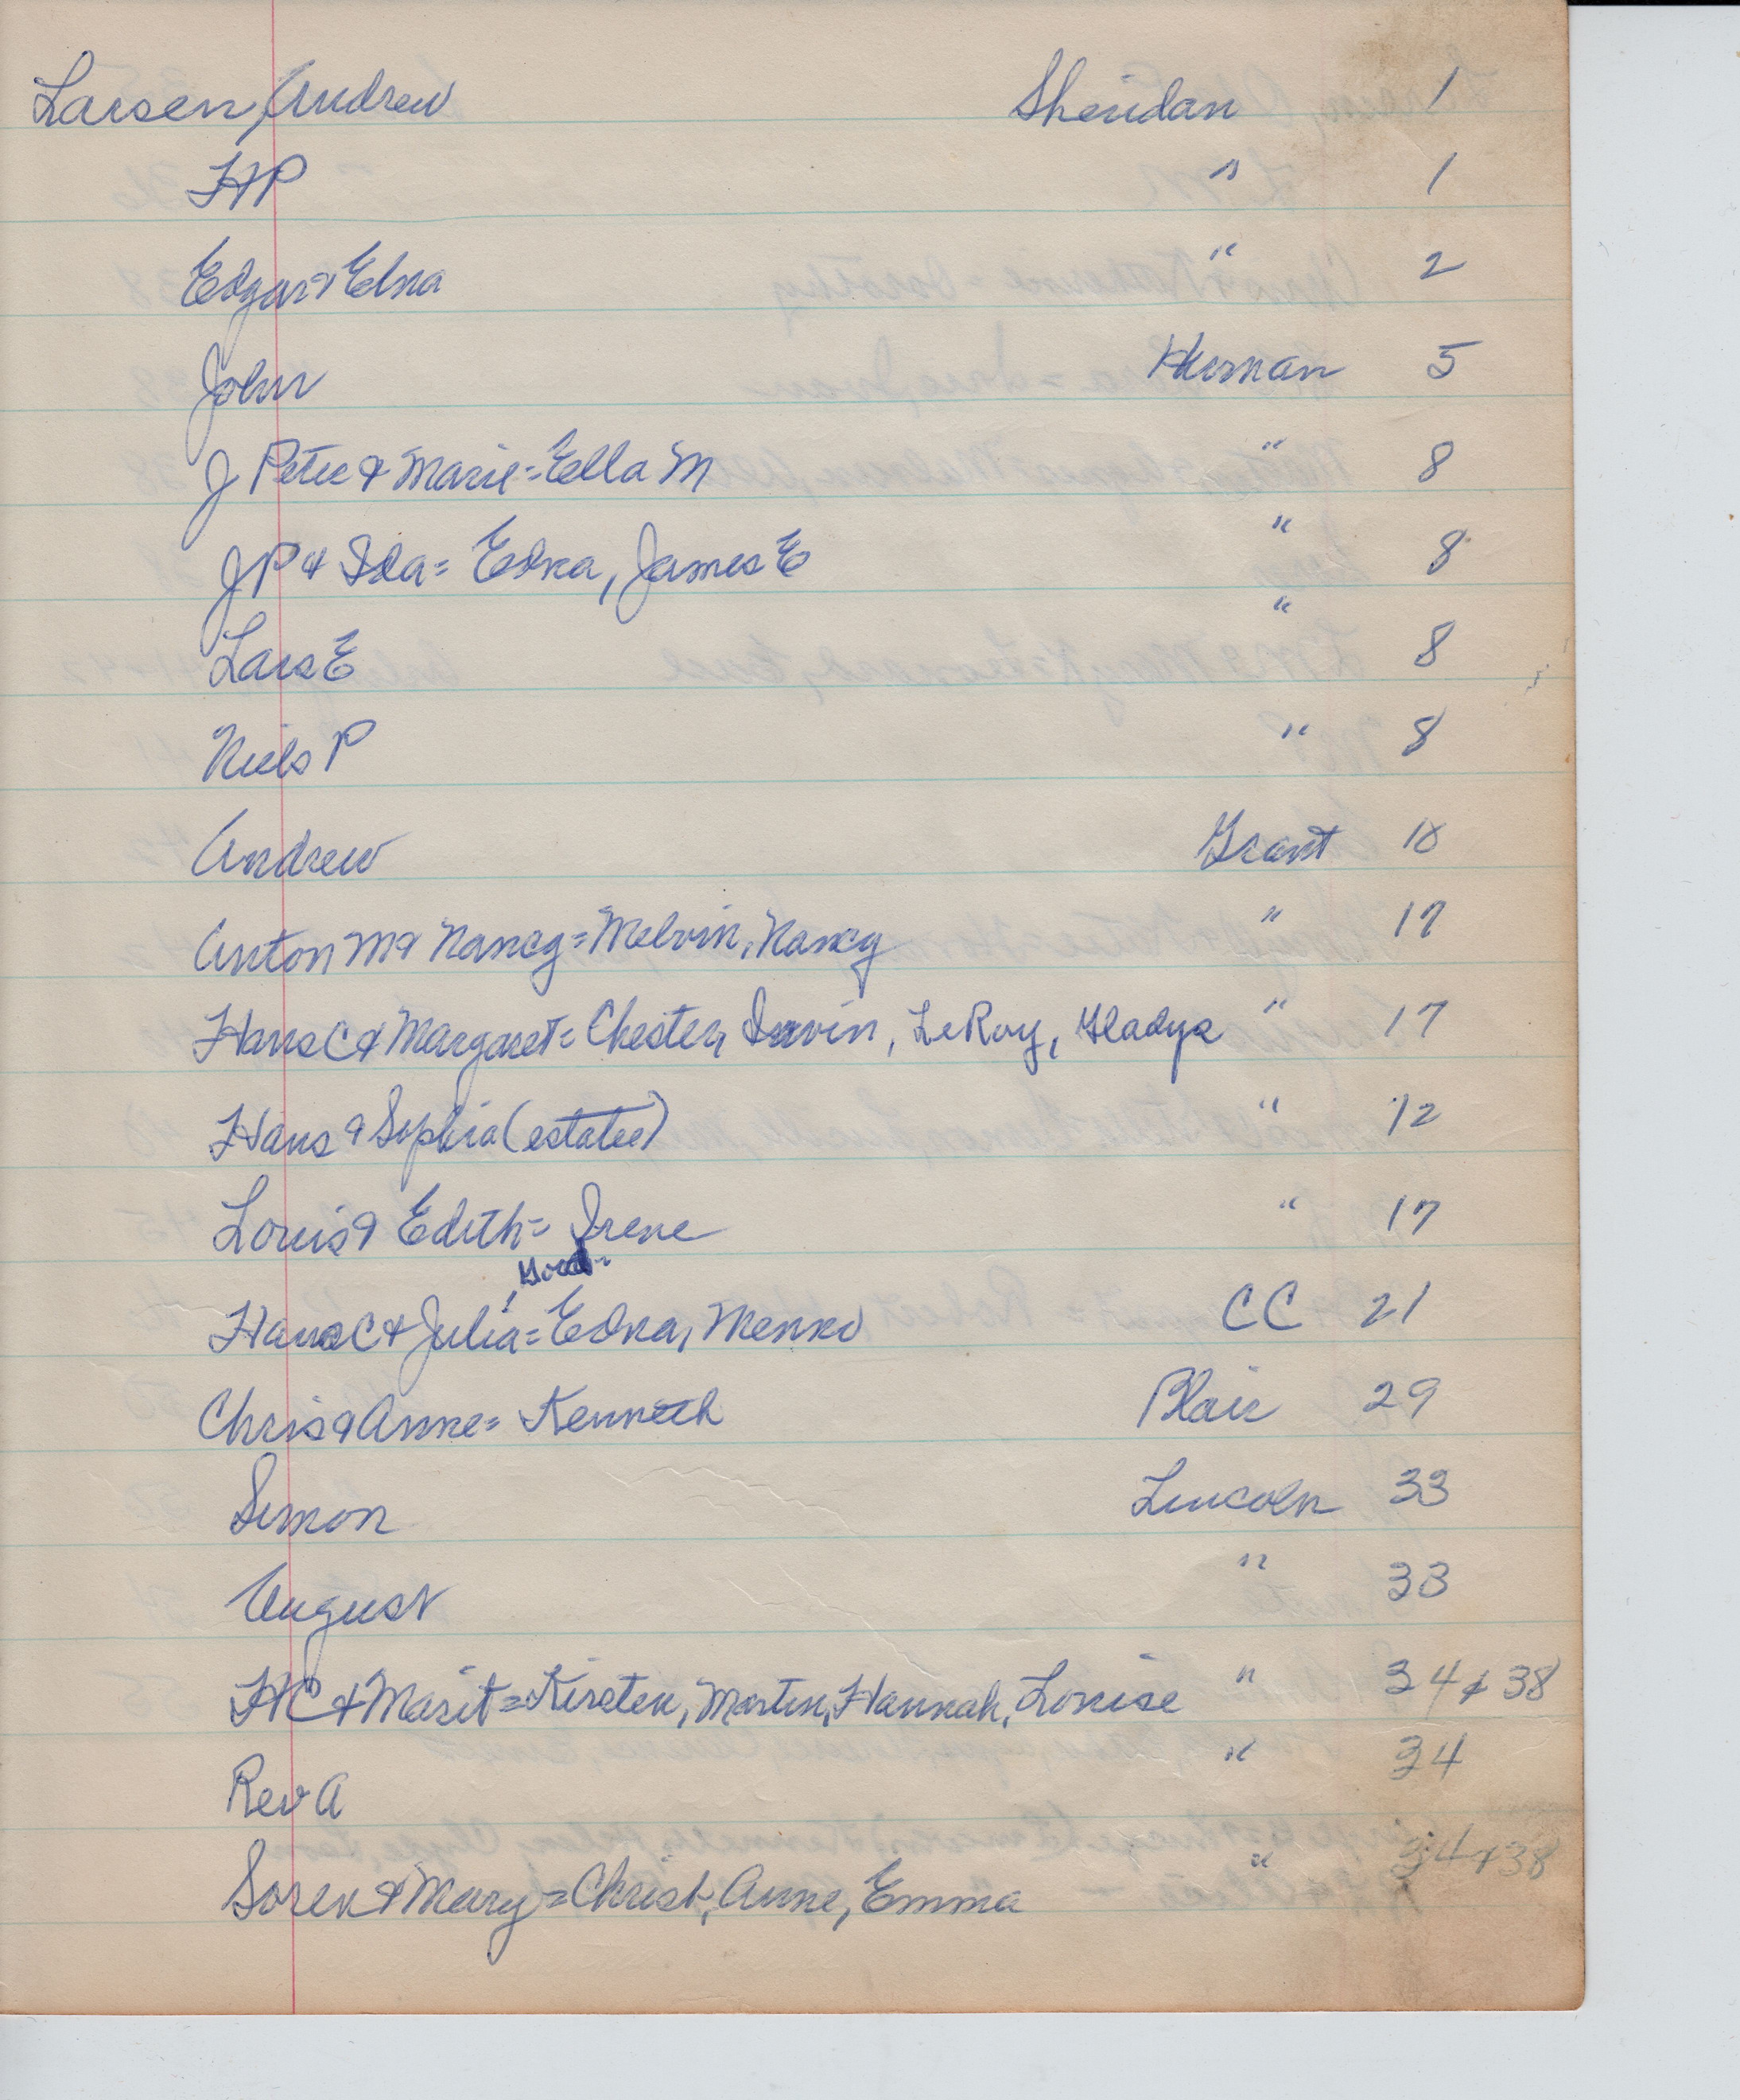 Larsen, Andrew Sheridan 1
HP " 1
Edgar & Edna " 2
John Herman 5
J Peter & Marie = Ella M " 8
JP & Ida = Edna, James E " 8
Lars E " 8
Niels P " 8
Andrew Grant 18
Anton M & Nancy = Melvin, Nancy " 17
Hans C & Margaret = Chester, Irvin, LeRoy, Gladys " 17
Hans & Sophia (estate) " 12
Louis & Edith = Irene " 17
Hans C & Julia = Edna, Menno CC 21
Chris & Anne = Kenneth Blair 29
Simon Lincoln 33
August " 33
HC & Marit = Kirsten, Martin, Hannah, Louise " 34 & 38
Rev A " 34
Soren & Mary = Christ, Anne, Emma " 34 & 38